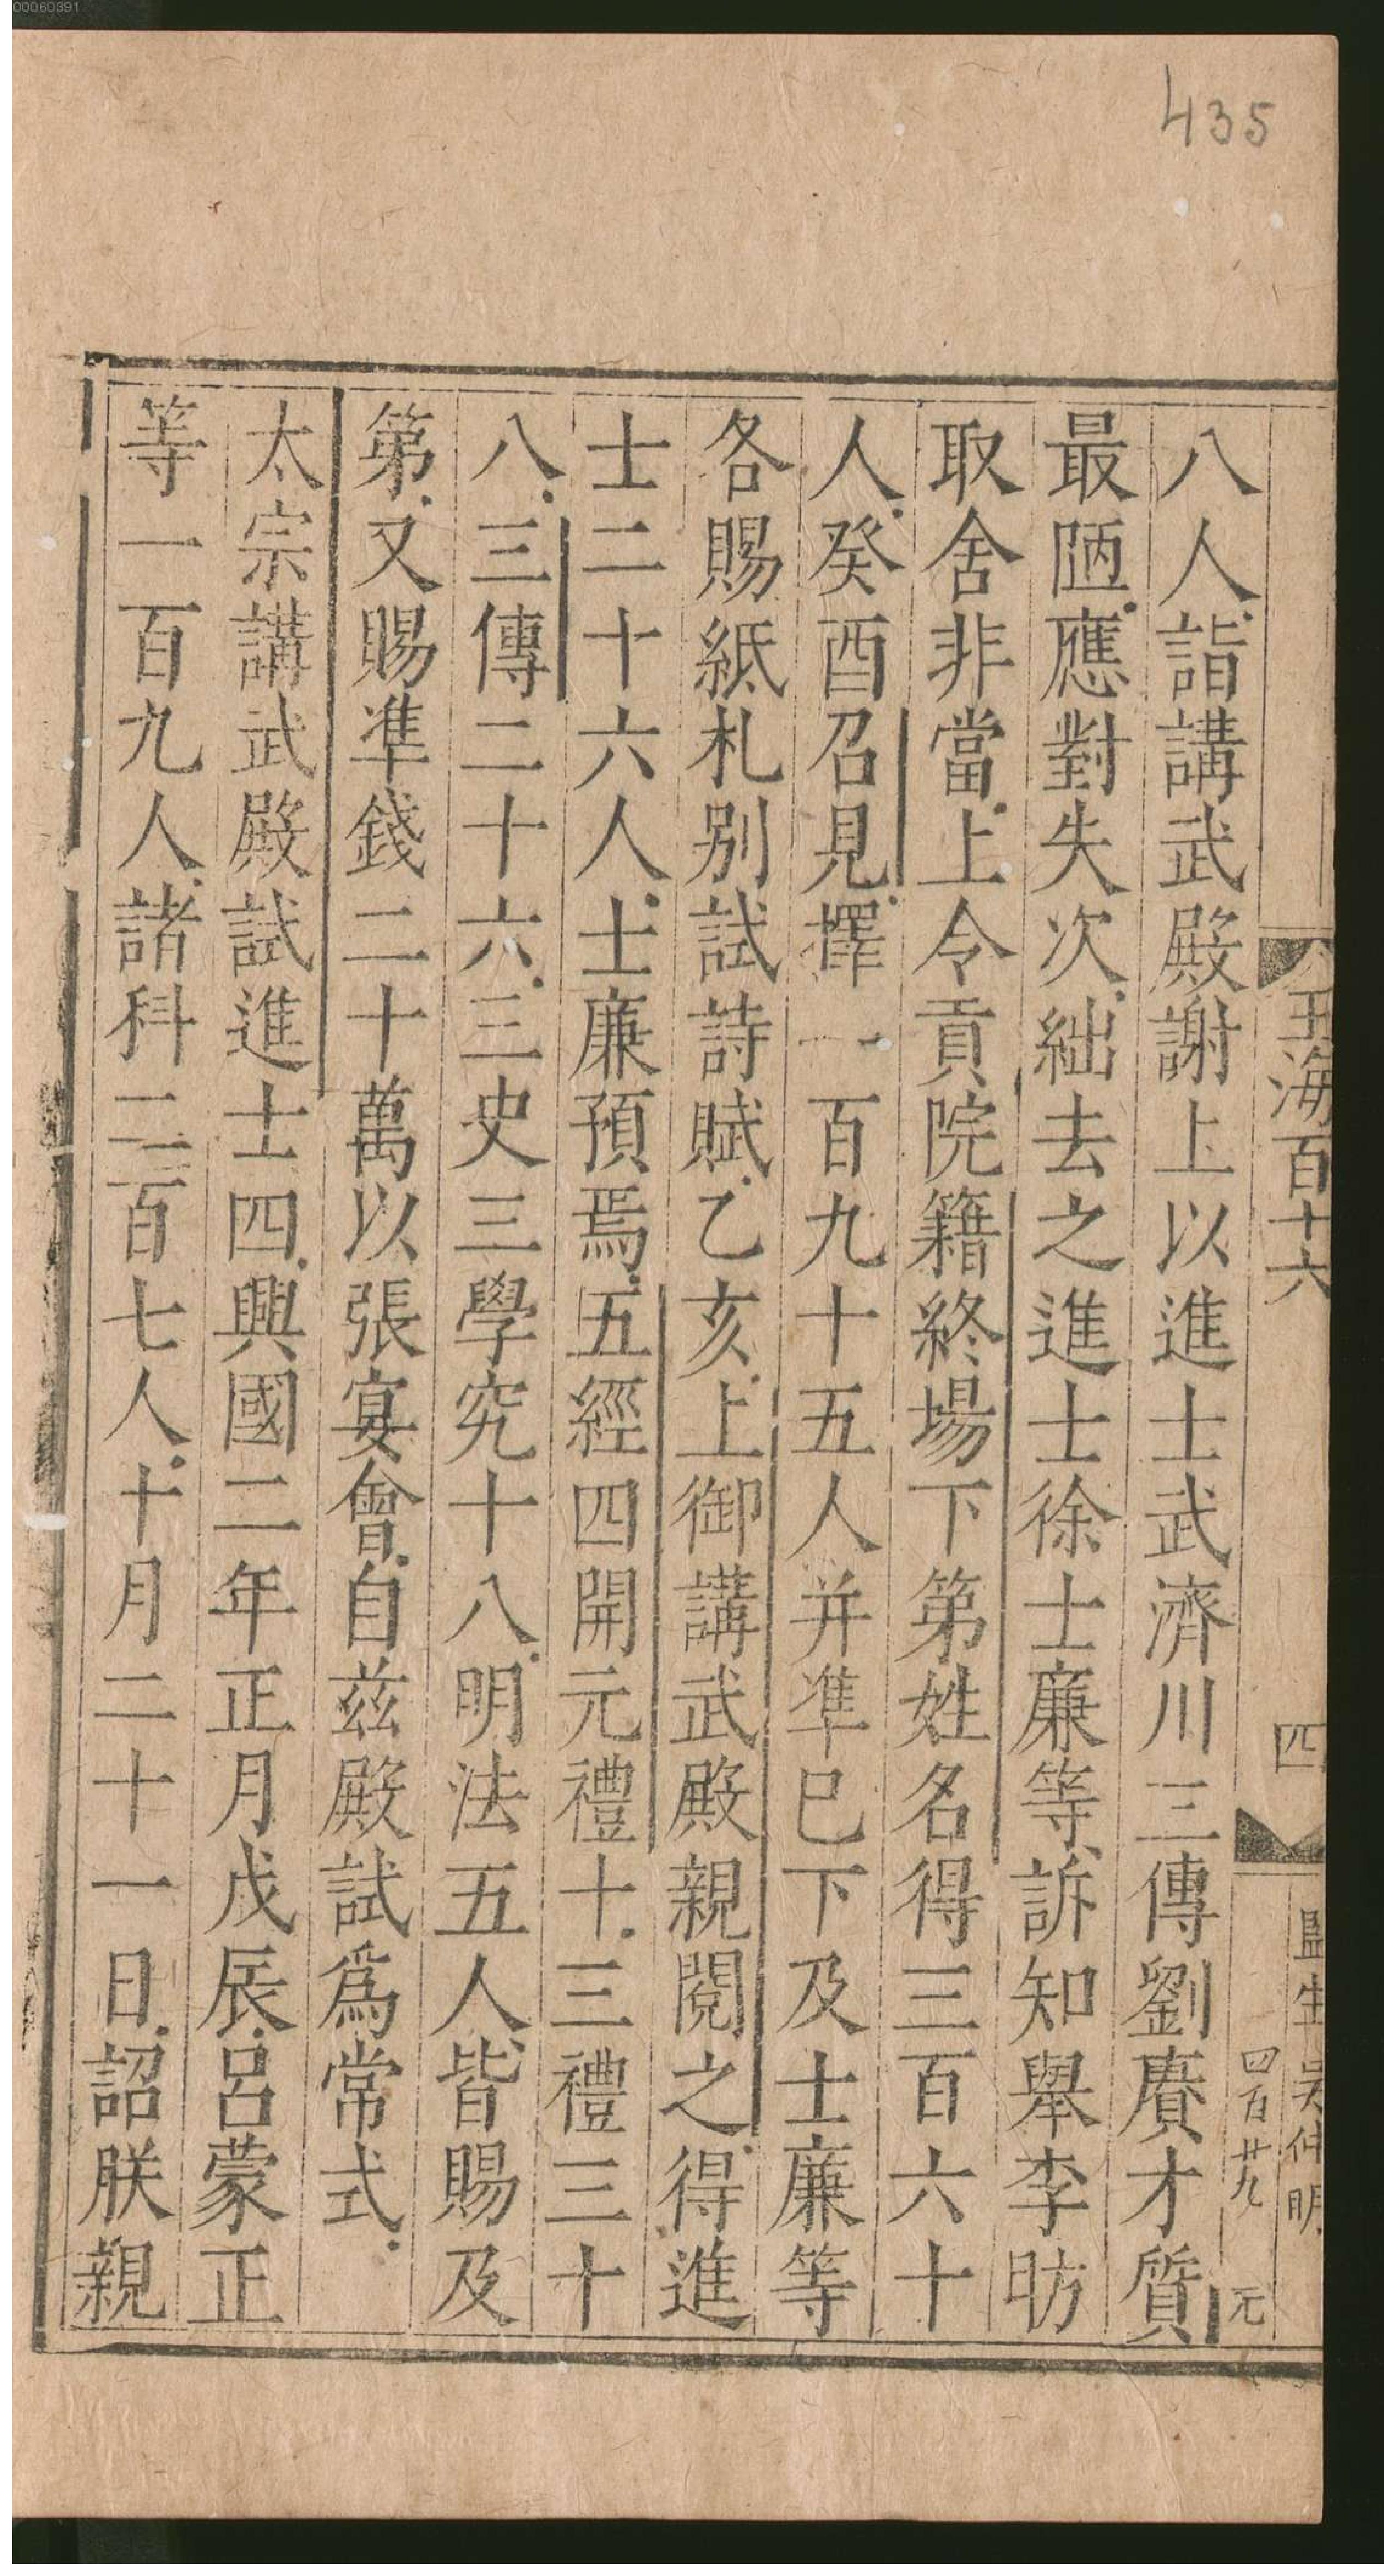 00060391
435
玉海百十六
四
監生吳仲明
四百廿九
元
八人詣講武殿謝上以進士武濟川三傳劉賡才質
最陋應對失次絀去之進士徐士廉等訴知舉李昉
取舍非當上令貢院籍終場下第姓名得三百六十
人癸酉召見擇一百九十五人并準已下及士廉等
各賜紙札別試詩賦乙亥上御講武殿親閱之得進
士二十六人士廉預焉五經四開元禮十三禮三十
八三傳二十六三史三學究十八明法五人皆賜及
第又賜準錢二十萬以張宴會自茲殿試爲常式
太宗講武殿試進士四興國二年正月戊辰呂蒙正
等一百九人諸科二百七人十月二十一日詔朕親